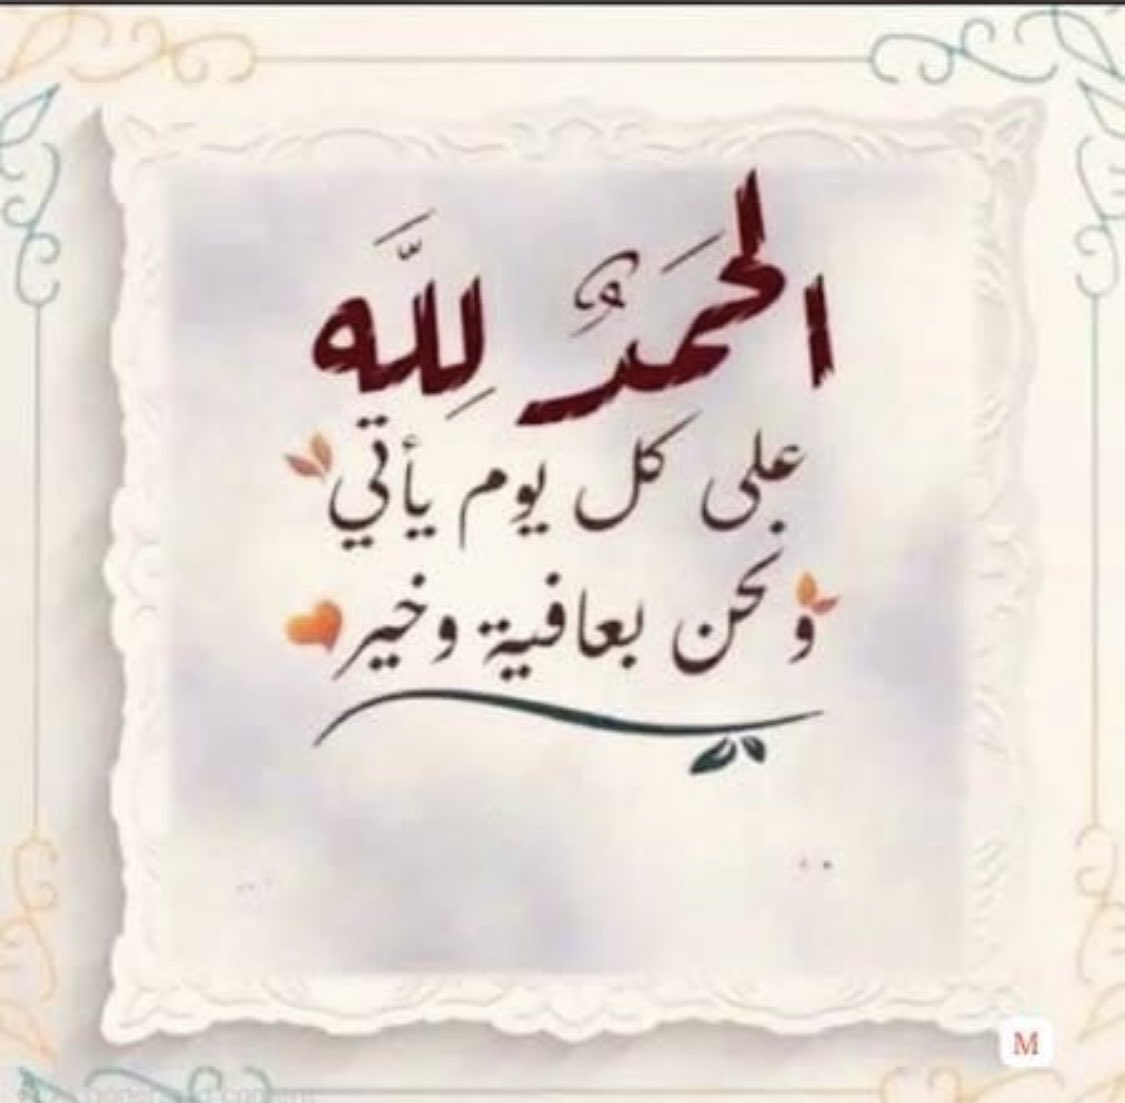 الحَمَدُ لِلَّه
على كل يوم يأتي
ونحن بعافية وخير
M